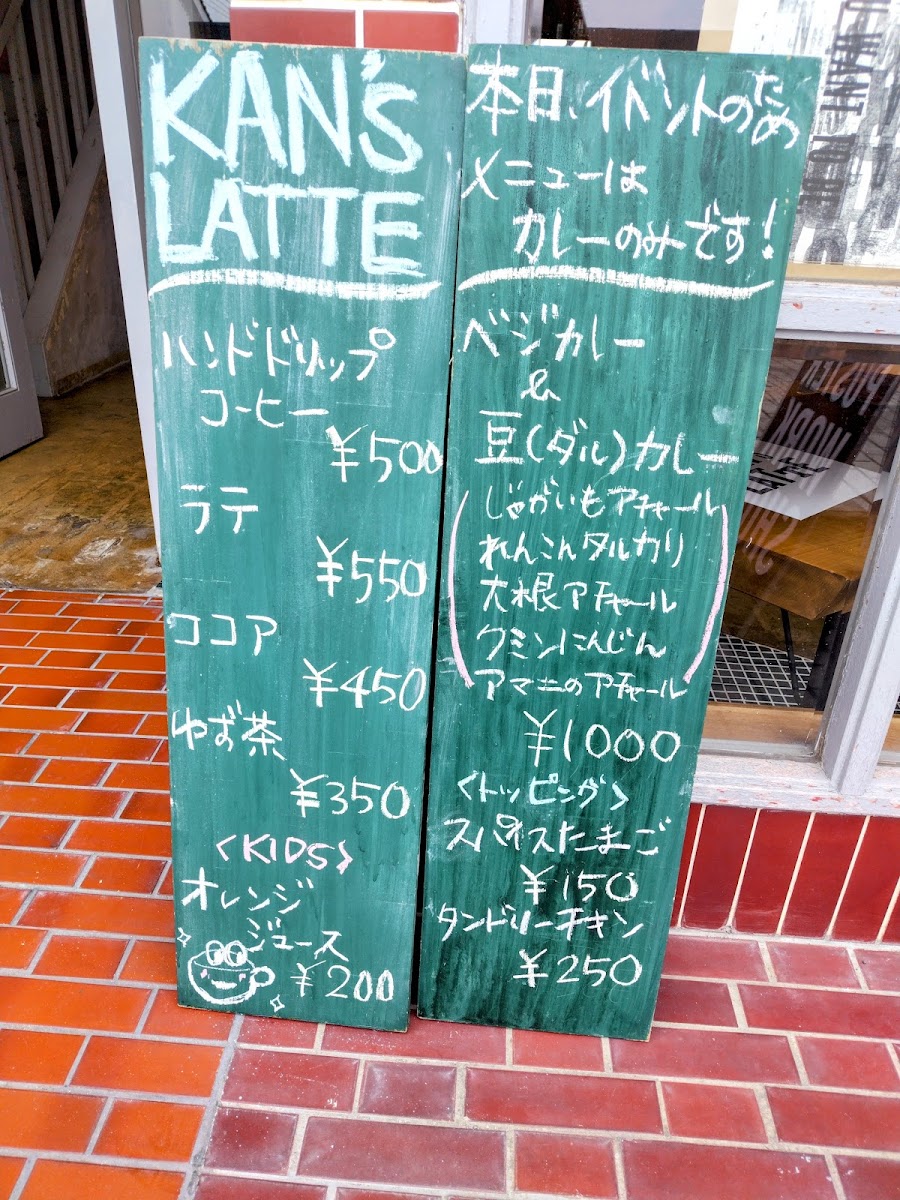 KAN's
LATTE
ハンドドリップ
コーヒー
¥500
ラテ
¥550
ココア
¥450
ゆず茶
¥350
<KIDS>
オレンジ
ジュース
¥200
本日、イベントのため
メニューは
カレーのみです!
ベジカレー
&
豆(ダル)カレー
(じゃがいもアチャール
れんこんタルカリ
大根アチャール
クミンにんじん
アマニのアチャール)
¥1000
<トッピング>
スパイスたまご
¥150
タンドリーチキン
¥250